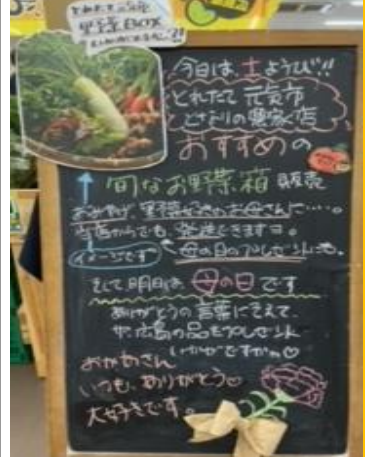 とれたて
野菜BOX
今日は、土ようび!!
とれたて元気市
となりの農家店
おすすめの
旬なお野菜箱 販売
おみやげ、野菜好きのお母さんに‥‥。
当店からでも、発送できます。
イメージです
母の日のプレゼントにも。
そして明日は、母の日です
ありがとうの言葉にそえて、
広島の品をプレゼント
いかがですか。♡
おかあさん
いつも、ありがとう♡
大好きです。